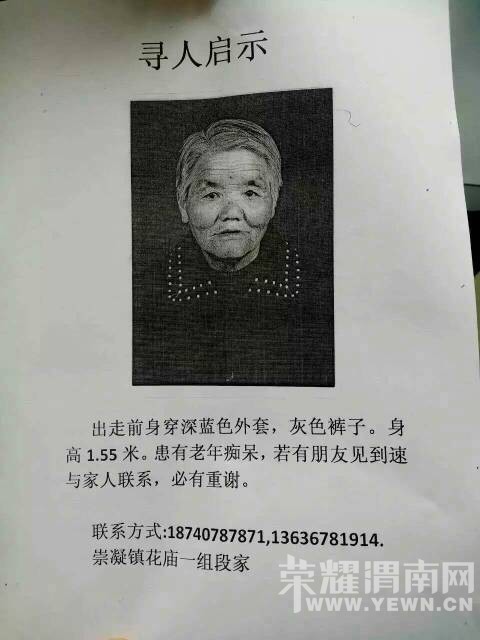 寻人启示
出走前身穿深蓝色外套，灰色裤子。身
高1.55米。患有老年痴呆，若有朋友见到速
与家人联系，必有重谢。
联系方式:18740787871,13636781914.
崇凝镇花庙一组段家
荣耀渭南网
WWW.YEWN.CN